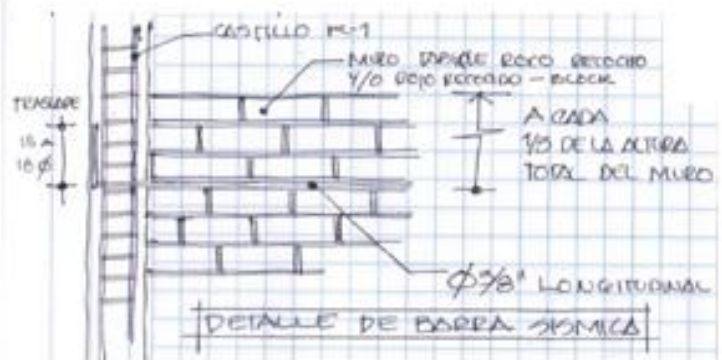 CASTILLO K-1
MURO TABIQUE ROJO RECOCHO
Y/O ROJO RECOCIDO - BLOCK
TRASLAPE
15 A
18 Ø
A CADA
1/3 DE LA ALTURA
TOTAL DEL MURO
Ø 3/8" LONGITUDINAL
DETALLE DE BARRA SISMICA